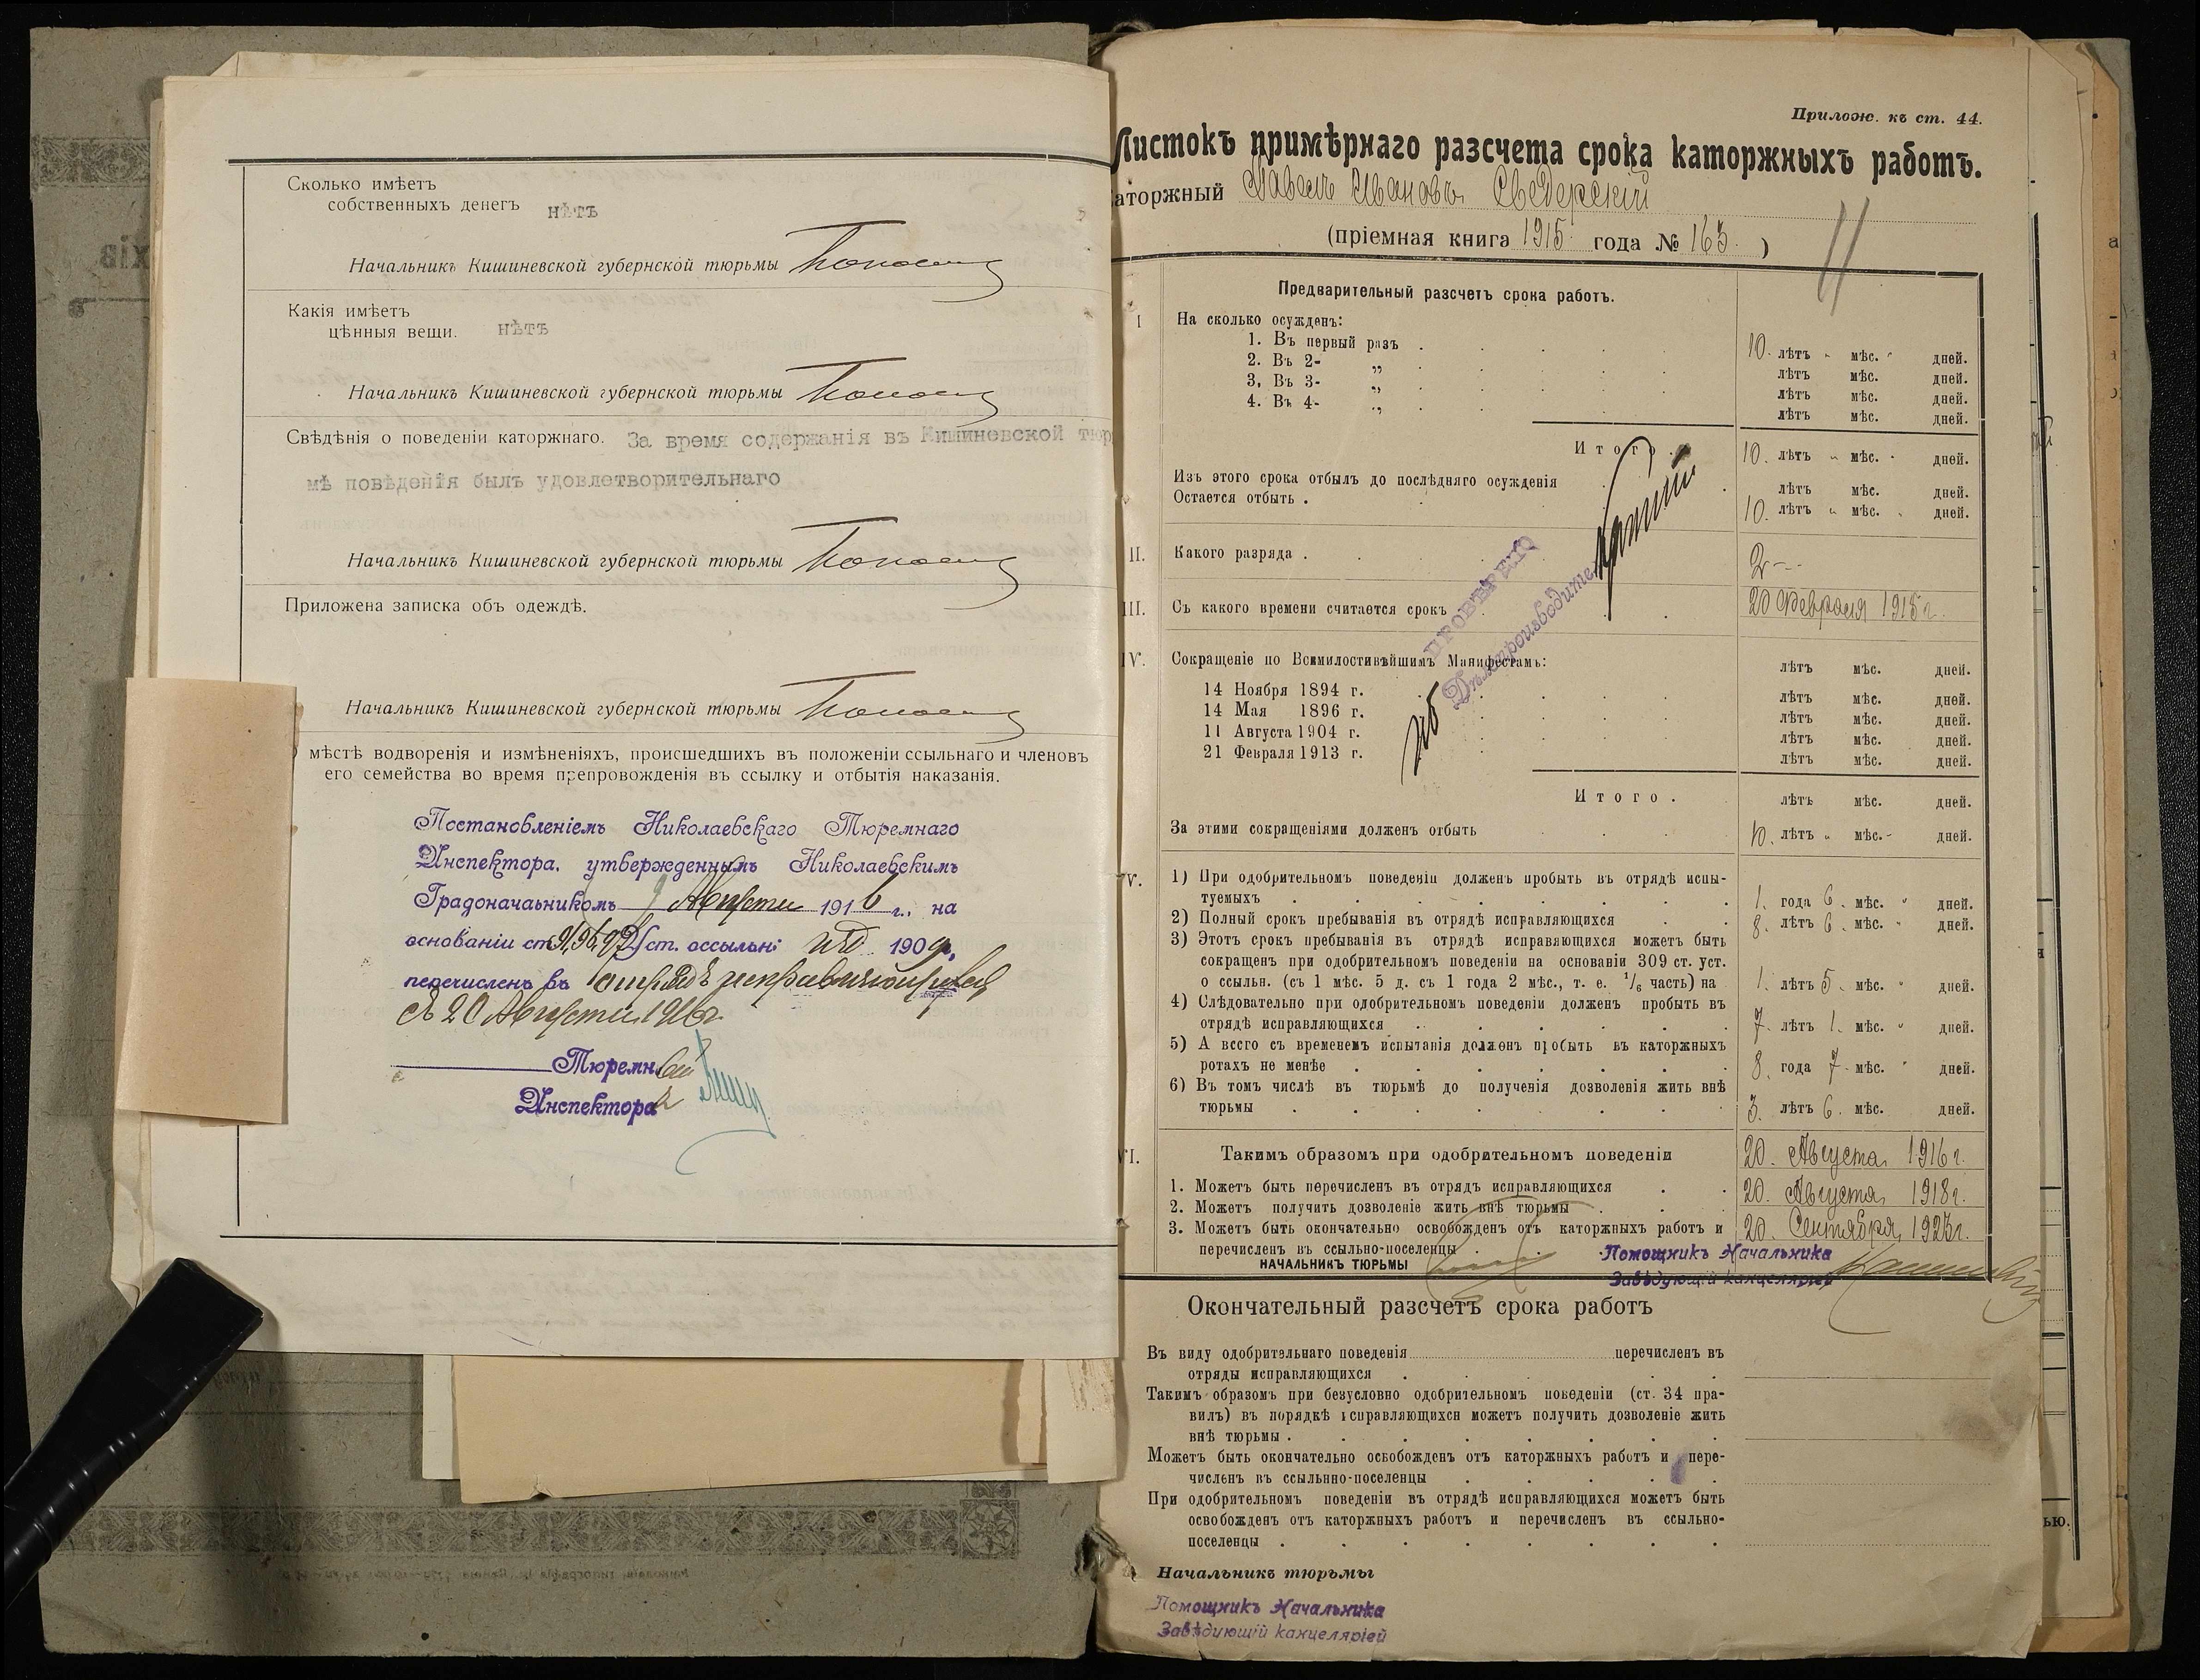 Сколько имѣетъ
собственныхъ денегъ нѣтъ
Начальникъ Кишиневской губернской тюрьмы
Какія имѣетъ
цѣнныя вещи. нѣтъ
Начальникъ Кишиневской губернской тюрьмы
Свѣдѣнія о поведеніи каторжнаго. За время содержанія въ Кишиневской тюр
мѣ поведенія былъ удовлетворительнаго
Начальникъ Кишиневской губернской тюрьмы
Приложена записка объ одеждѣ.
Начальникъ Кишиневской губернской тюрьмы
мѣстѣ водворенія и измѣненіяхъ, происшедшихъ въ положеніи ссыльнаго и членовъ
его семейства во время препровожденія въ ссылку и отбытія наказанія.
Постановленіемъ Николаевскаго Тюремнаго
Инспектора, утвержденнымъ Николаевскимъ
Градоначальникомъ 9 Августа 1916 г., на
основаніи ст. уст. оссыльн: изд. 1909 г.
перечисленъ въ отрядъ исправляющихся
съ 20 Августа 1916 г.
Тюремн
Инспектора
Прилож. къ ст. 44.
Листокъ примѣрнаго разсчета срока каторжныхъ работъ.
аторжный Павелъ Ивановъ Сведерскій
(пріемная книга 1915 года № 163.)
11
Предварительный разсчетъ срока работъ.
I На сколько осужденъ:
1. Въ первый разъ 10. лѣтъ „ мѣс. „ дней.
2. Въ 2- „ лѣтъ мѣс. дней.
3, Въ 3- „ лѣтъ мѣс. дней.
4. Въ 4- „ лѣтъ мѣс. дней.
Итого. 10. лѣтъ „ мѣс. „ дней.
Изъ этого срока отбылъ до послѣдняго осужденія лѣтъ мѣс. дней.
Остается отбыть . 10. лѣтъ „ мѣс. „ дней.
II. Какого разряда . 2-
ПРОВѢРЕНО
Дѣлопроизводитель
III. Съ какого времени считается срокъ 20 Февраля 1915 г.
IV. Сокращеніе по Всемилостивѣйшимъ Манифестамъ: лѣтъ мѣс. дней.
14 Ноября 1894 г. лѣтъ мѣс. дней.
14 Мая 1896 г. лѣтъ мѣс. дней.
11 Августа 1904 г. лѣтъ мѣс. дней.
21 Февраля 1913 г. лѣтъ мѣс. дней.
Итого. лѣтъ мѣс. дней.
За этими сокращеніями долженъ отбыть 10. лѣтъ „ мѣс. - дней.
V. 1) При одобрительномъ поведеніи долженъ пробыть въ отрядѣ испы-
туемыхъ 1. года 6. мѣс. „ дней.
2) Полный срокъ пребыванія въ отрядѣ исправляющихся 8. лѣтъ 6. мѣс. „ дней.
3) Этотъ срокъ пребыванія въ отрядѣ исправляющихся можетъ быть
сокращен при одобрительномъ поведеніи на основаніи 309 ст. уст.
о ссыльн. (съ 1 мѣс. 5 д. съ 1 года 2 мѣс., т. е. 1/6 часть) на 1. лѣтъ 5. мѣс. „ дней.
4) Слѣдовательно при одобрительномъ поведеніи долженъ пробыть въ
отрядѣ исправляющихся 7. лѣтъ 1. мѣс. „ дней.
5) А всего съ временемъ испытанія долженъ пробыть въ каторжныхъ
ротахъ не менѣе 8. года 7. мѣс. „ дней.
6) Въ томъ числѣ въ тюрьмѣ до полученія дозволенія жить внѣ
тюрьмы 3. лѣтъ 6. мѣс. дней.
VI. Такимъ образомъ при одобрительномъ поведеніи
1. Можетъ быть перечисленъ въ отрядъ исправляющихся 20. Августа 1916 г.
2. Можетъ получить дозволеніе жить внѣ тюрьмы 20. Августа 1918 г.
3. Можетъ быть окончательно освобожденъ отъ каторжныхъ работъ и 20. Сентября 1923 г.
перечисленъ въ ссыльно-поселенцы
НАЧАЛЬНИКЪ ТЮРЬМЫ
Помощникъ Начальника
Завѣдующій канцеляріей
Окончательный разсчетъ срока работъ
Въ виду одобрительнаго поведенія перечисленъ въ
отряды исправляющихся
Такимъ образомъ при безусловно одобрительномъ поведеніи (ст. 34 пра-
вилъ) въ порядкѣ исправляющихся можетъ получить дозволеніе жить
внѣ тюрьмы
Можетъ быть окончательно освобожденъ отъ каторжныхъ работъ и пере-
численъ въ ссыльнно-поселенцы
При одобрительномъ поведеніи въ отрядѣ исправляющихся можетъ быть
освобожденъ отъ каторжныхъ работъ и перечисленъ въ ссыльно-
поселенцы
Начальникъ тюрьмы
Помощникъ Начальника
Завѣдующій канцеляріей
ью.